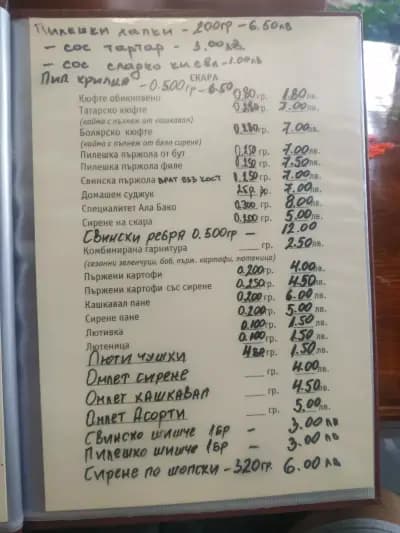 Пилешки хапки - 200гр - 6.50лв
- сос тартар - 3.00лв
- сос сладко кисел - 1.00лв
Пил крилца - 0.500гр - 6.50
СКАРА
Кюфте обикновено 0,80 гр. 1.80 лв.
Татарско кюфте гр. 7.00 лв.
(кайма с пълнеж от кашкавал)
Болярско кюфте гр. 7.00 лв.
(кайма с пълнеж от бяло сирене)
Пилешка пържола от бут 0,250 гр. 7.00 лв.
Пилешка пържола филе 0,250 гр. 7.50 лв.
Свинска пържола ВРАТ БЕЗ КОСТ 0,250 гр. 7.00 лв.
Домашен суджук 1бр 7.00 лв.
Специалитет Ала Бако 0,300 гр. 8.00 лв.
Сирене на скара 0,200 гр. 5.00 лв.
Свински ребра 0.500гр - 12.00
Комбинирана гарнитура ___ гр. 2.50 лв.
(сезонни зеленчуци, боб, пърж. картофи, лютеница)
Пържени картофи 0,200 гр. 4.00 лв.
Пържени картофи със сирене 0,250 гр. 4.50 лв.
Кашкавал пане 0,200 гр. 6.00 лв.
Сирене пане 0,200 гр. 5.00 лв.
Лютивка 0.100 гр. 1.50 лв.
Лютеница 0.100 гр. 1.50 лв.
Люти чушки гр. 1.50 лв.
Омлет сирене ___ гр. 4.00 лв.
Омлет кашкавал ___ гр. 4.50 лв.
Омлет Асорти ___ гр. 5.00 лв.
Свинско шишче 1бр - 3.00 лв
Пилешко шишче 1бр - 3.00 лв
Сирене по шопски - 320гр. 6.00 лв